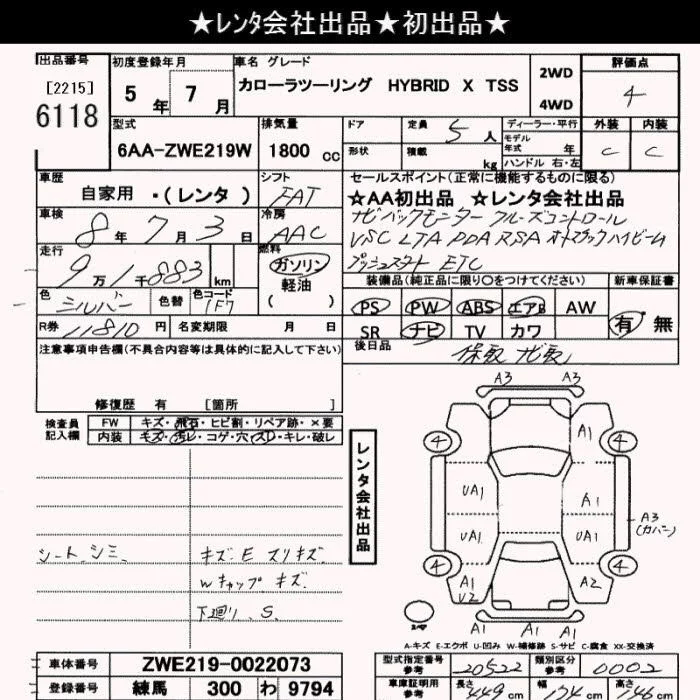 ★ﾚﾝﾀ会社出品★初出品★
出品番号 初度登録年月 車名 グレード 評価点
[2215] 5年 7月 カローラツーリング HYBRID X TSS 2WD 4
6118 4WD
型式 排気量 ドア 定員 5人 ディーラー・平行 外装 内装
6AA-ZWE219W 1800cc 形状 積載 kg モデル年式 年 C C
ハンドル 右・左
車歴 シフト セールスポイント(正常に機能するものに限る)
自家用 ・(レンタ) FAT ★AA初出品 ★レンタ会社出品
車検 冷房 ナビ バックモニター クルーズコントロール
8年 7月 3日 AAC VSC LTA PDA RSA オートマチックハイビーム
走行 燃料 プッシュスタート ETC
9万1千883km ガソリン 装備品(純正品に限り○をつけてください) 新車保証書
色 シルバー 色替 色コード 1F7 軽油 ( ) PS PW ABS エアB AW 有 無
R券 11810円 名変期限 月 日 SR ナビ TV カワ
注意事項申告欄(不具合内容等は具体的に記入して下さい) 後日品 保取 ナビ取
修復歴 有 [箇所 ]
検査員記入欄 FW キズ・飛石・ヒビ割・リペア跡・×要
内装 キズ・汚レ・コゲ・穴・スレ・キレ・破レ
レンタ会社出品
A3 A3
4 A1 4
UA1 A1
UA1 UA1 A3(カバー)
シート シミ キズ.E スリキズ.
Wキャップ キズ.
下廻り S.
4 A1 U2 A2 4
スペア A1 A1 A1
A-キズ E-エクボ U-凹み W-補修跡 S-サビ C-腐食 XX-交換済
車体番号 ZWE219-0022073 型式指定番号 参考 20522 類別区分 参考 0002
登録番号 練馬 300 わ 9794 車庫証明用 参考 長さ 449cm 幅 174cm 高さ 146cm